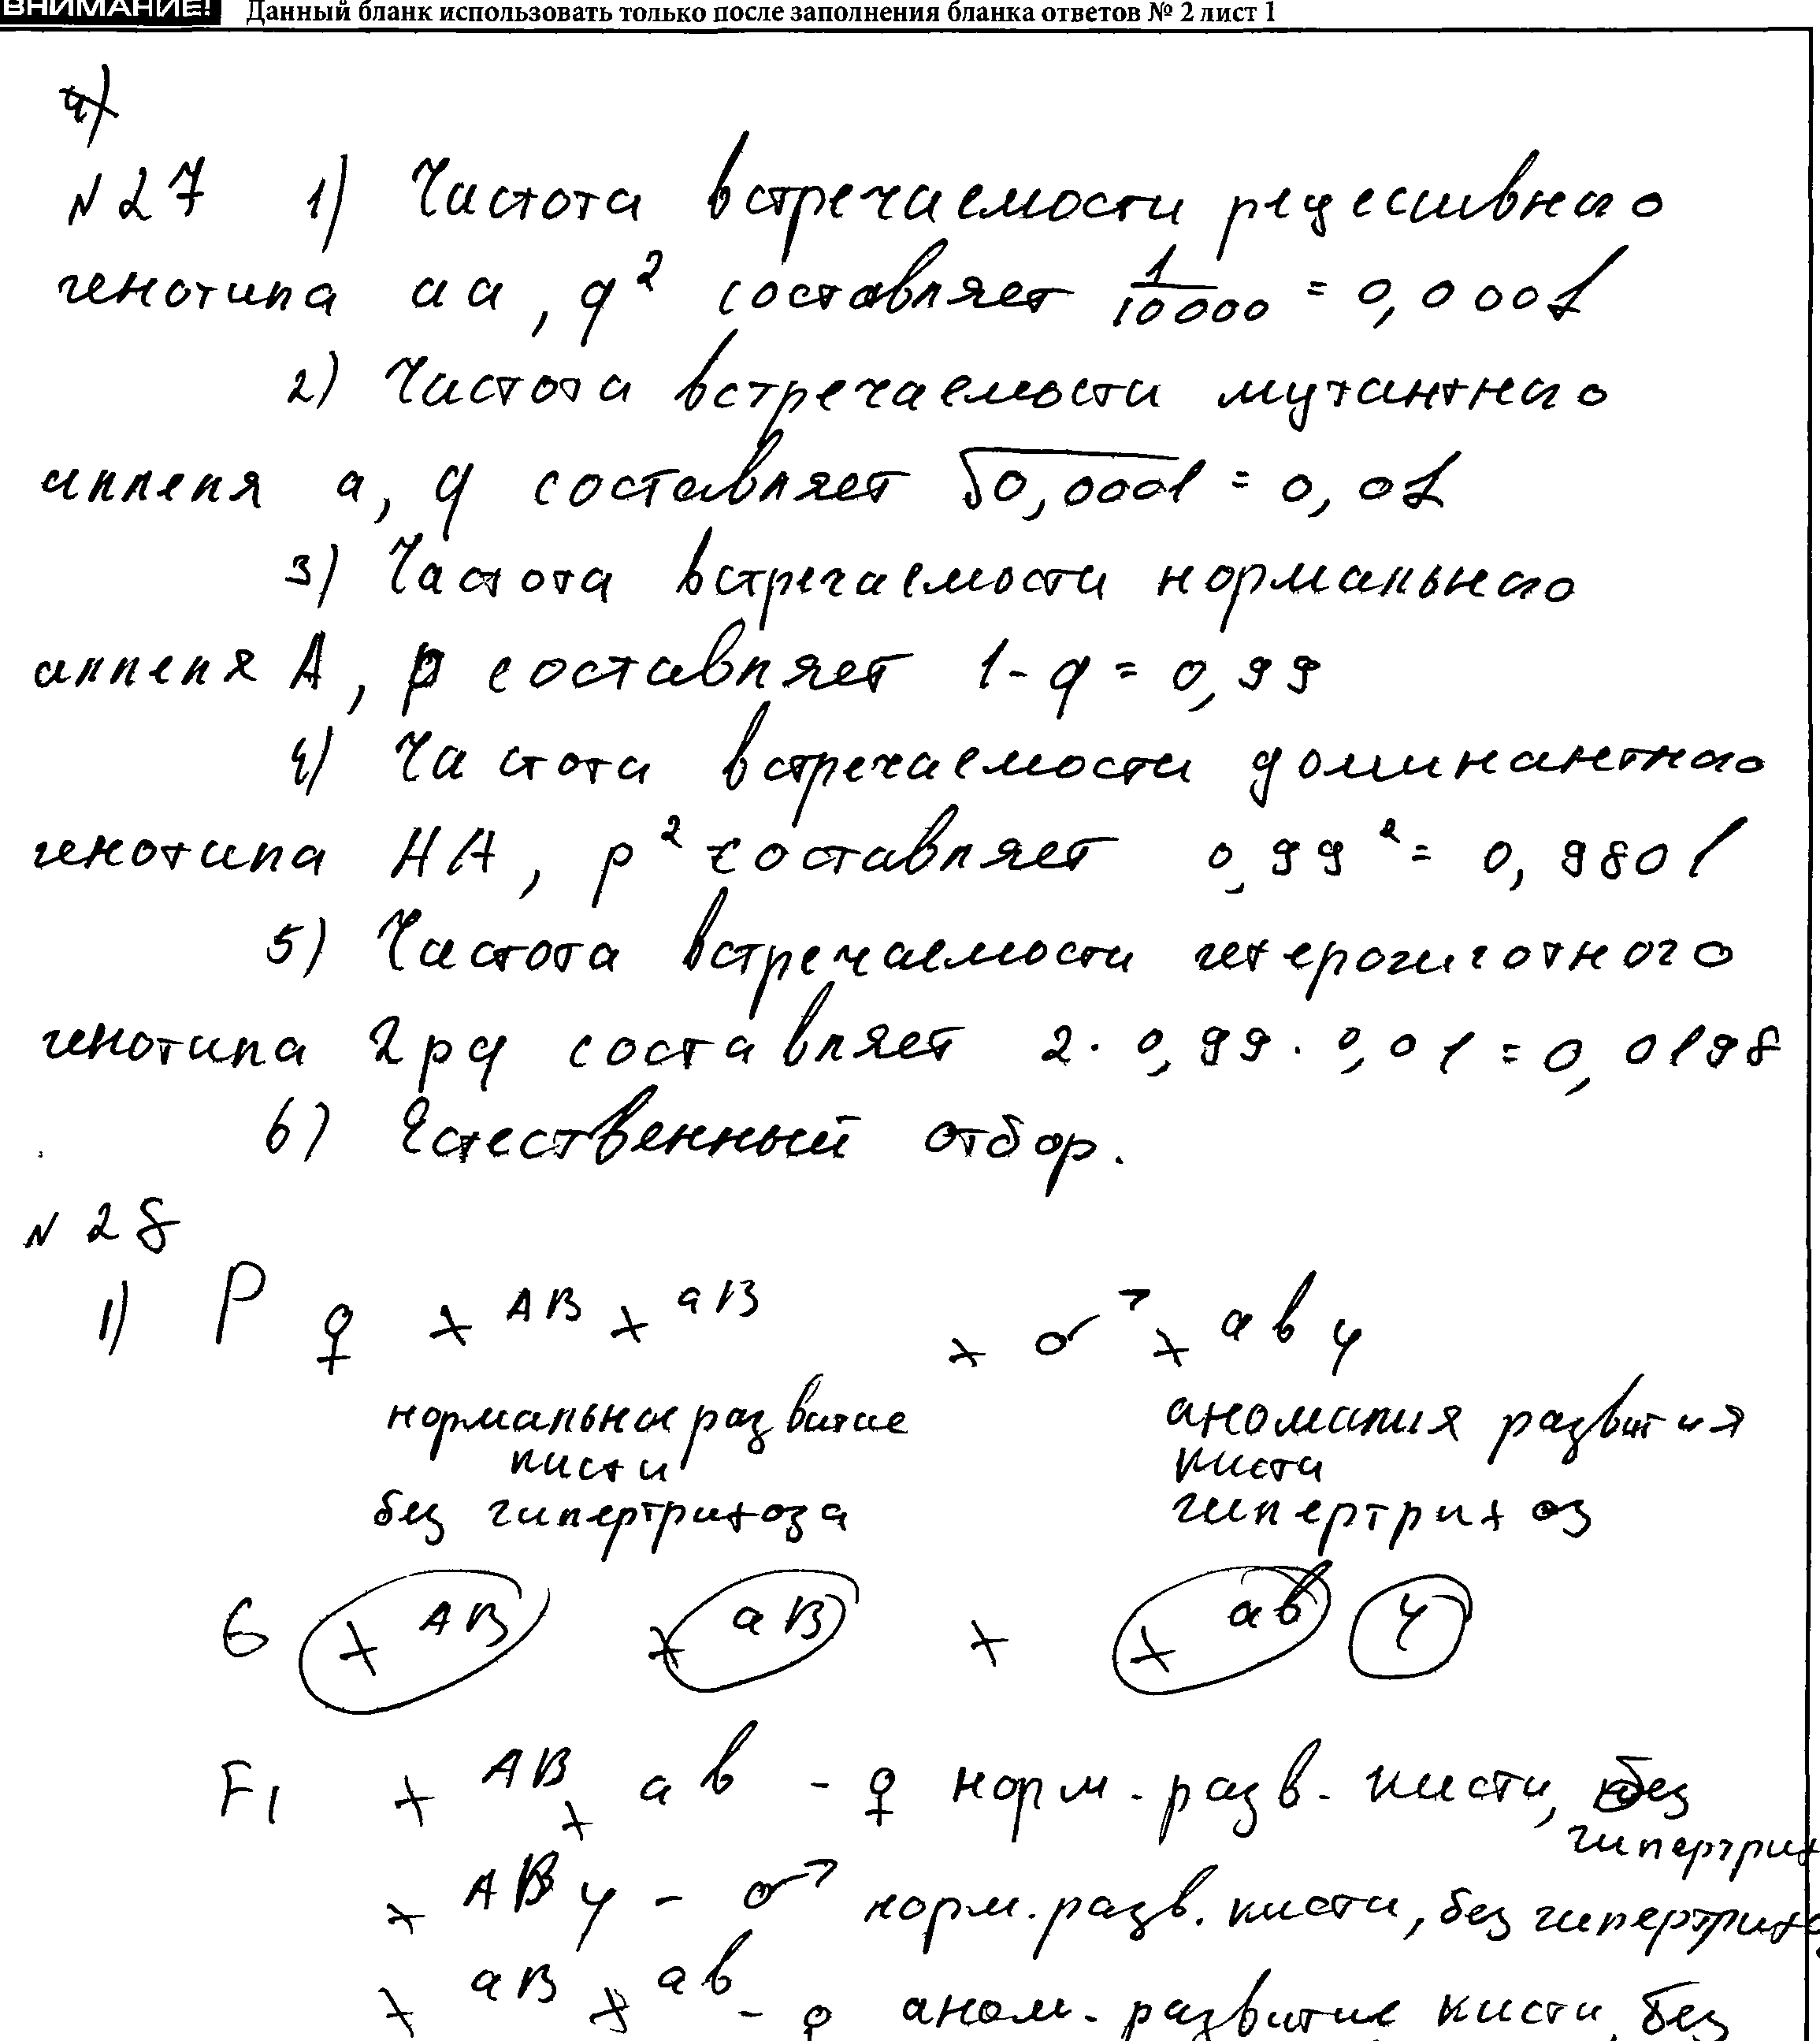 ВНИМАНИЕ! Данный бланк использовать только после заполнения бланка ответов № 2 лист 1
4)
N27 1) Частота встречаемости рецессивного
генотипа аа, q² составляет 1/10000 = 0,0001
2) Частота встречаемости мутантного
аллеля а, q составляет √0,0001 = 0,01
3) Частота встречаемости нормального
аллеля А, p составляет 1-q = 0,99
4) Частота встречаемости доминантного
генотипа АА, p² составляет 0,99² = 0,9801
5) Частота встречаемости гетерозиготного
генотипа 2pq составляет 2·0,99·0,01 = 0,0198
6) Естественный отбор.
N28
1) P ♀ x^AB x^aB x ♂ x^ab y
нормальное развитие аномалия развития
кисти кисти
без гипертрихоза гипертрихоз
G x^AB x^aB x x^ab y
F1 x^AB x^ab - ♀ норм. разв. кисти, без
гипертрих
x^AB y - ♂ норм. разв. кисти, без гипертрихо
x^aB x^ab - ♀ аном. развитие кисти, без